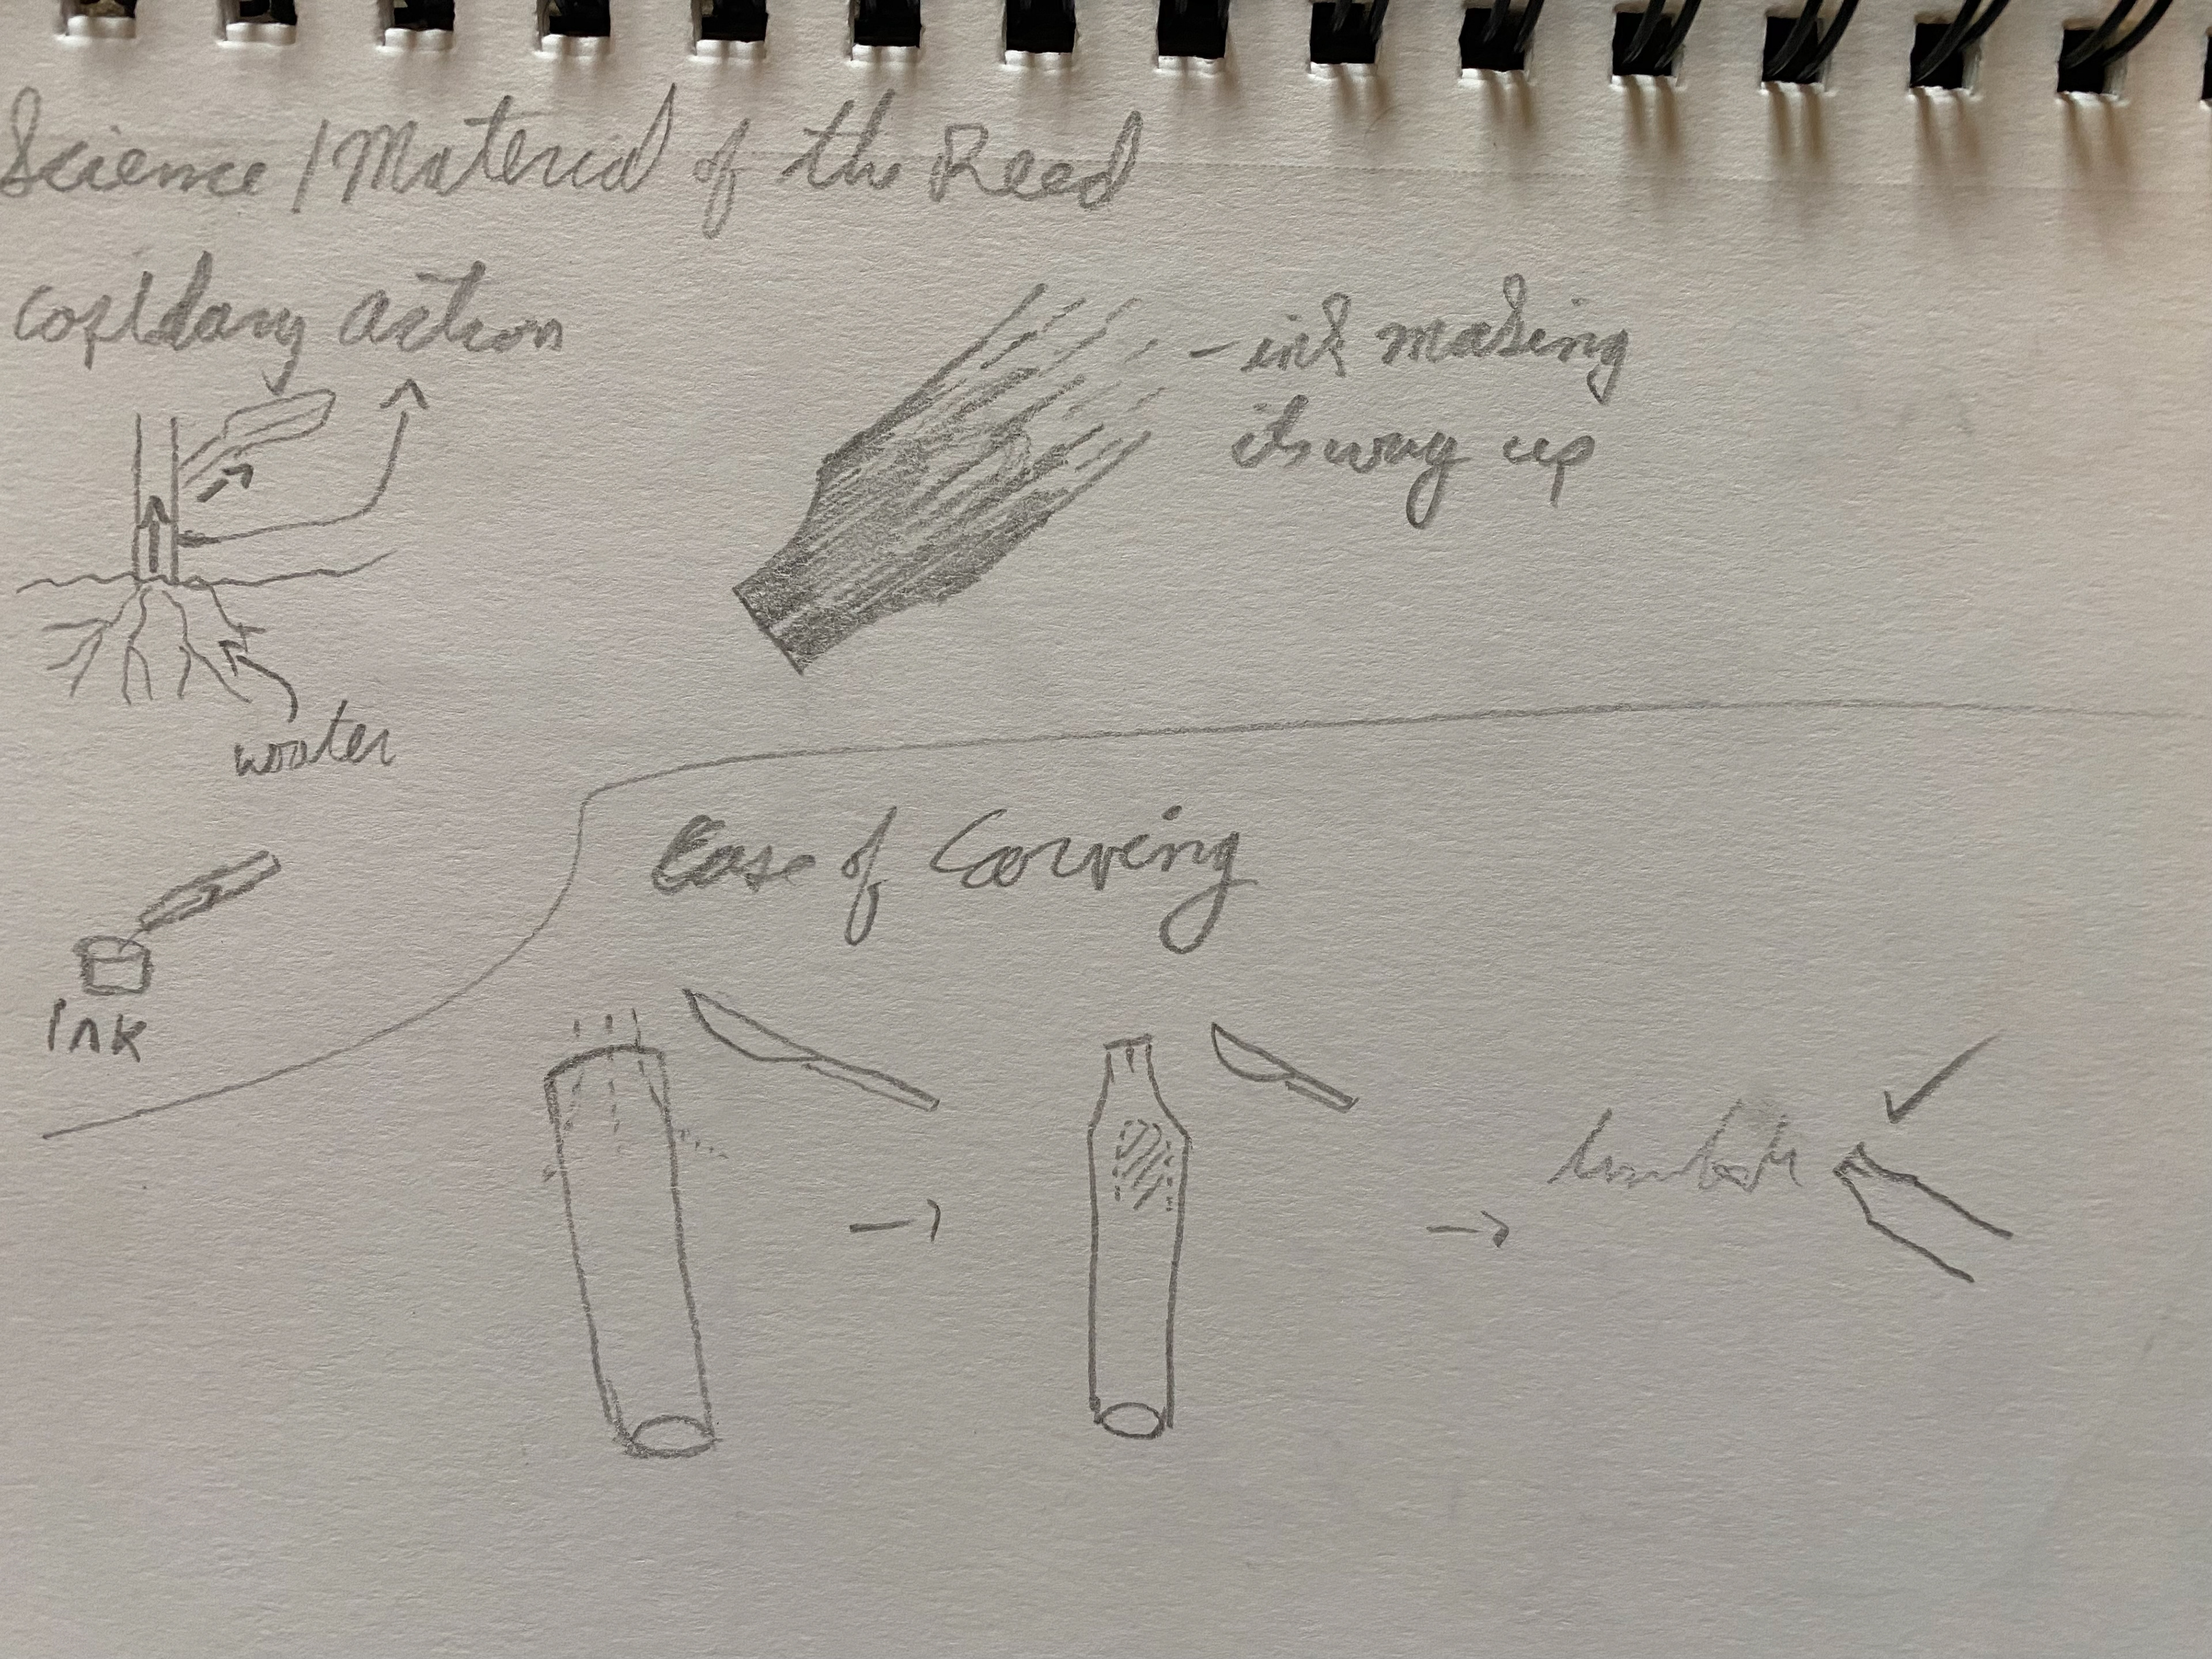 Science / Material of the Reed
Capillary action
- ink making
its way up
water
Ink
Ease of Carving